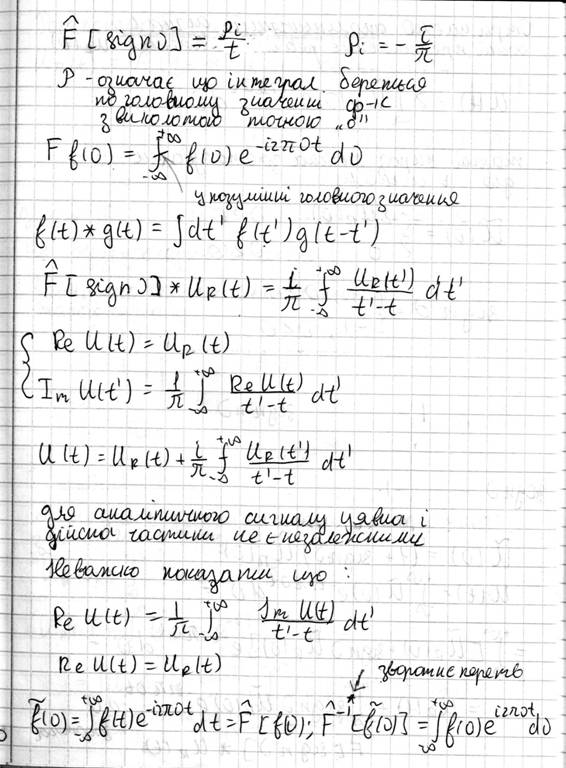 F̂ [sign ν] = ρi/t     ρi = - i/π
P - означає що інтеграл береться
по головному значенні ф-ії
з виколотою точкою „0"
F f(ν) = ∫_{-∞}^{+∞} f(ν) e^{-i2πνt} dν
у розумінні головного значення
f(t) * g(t) = ∫dt' f(t') g(t-t')
F̂ [sign ν] * U_R(t) = i/π ∫_{-∞}^{+∞} U_R(t')/(t'-t) dt'
{ Re U(t) = U_R(t)
Im U(t') = 1/π ∫_{-∞}^{+∞} Re U(t)/(t'-t) dt'
U(t) = U_R(t) + i/π ∫_{-∞}^{+∞} U_R(t')/(t'-t) dt'
для аналітичного сигналу уявна і
дійсна частини не є незалежними
Неважко показати що :
Re U(t) = 1/π ∫_{-∞}^{+∞} Im U(t)/(t'-t) dt'
Re U(t) = U_R(t)
зворотнє перетв
f̃(ν) = ∫_{-∞}^{+∞} f(t) e^{-i2πνt} dt = F̂ [f(ν)]; F̂^{-1} [f̃(ν)] = ∫_{-∞}^{+∞} f(ν) e^{i2πνt} dν